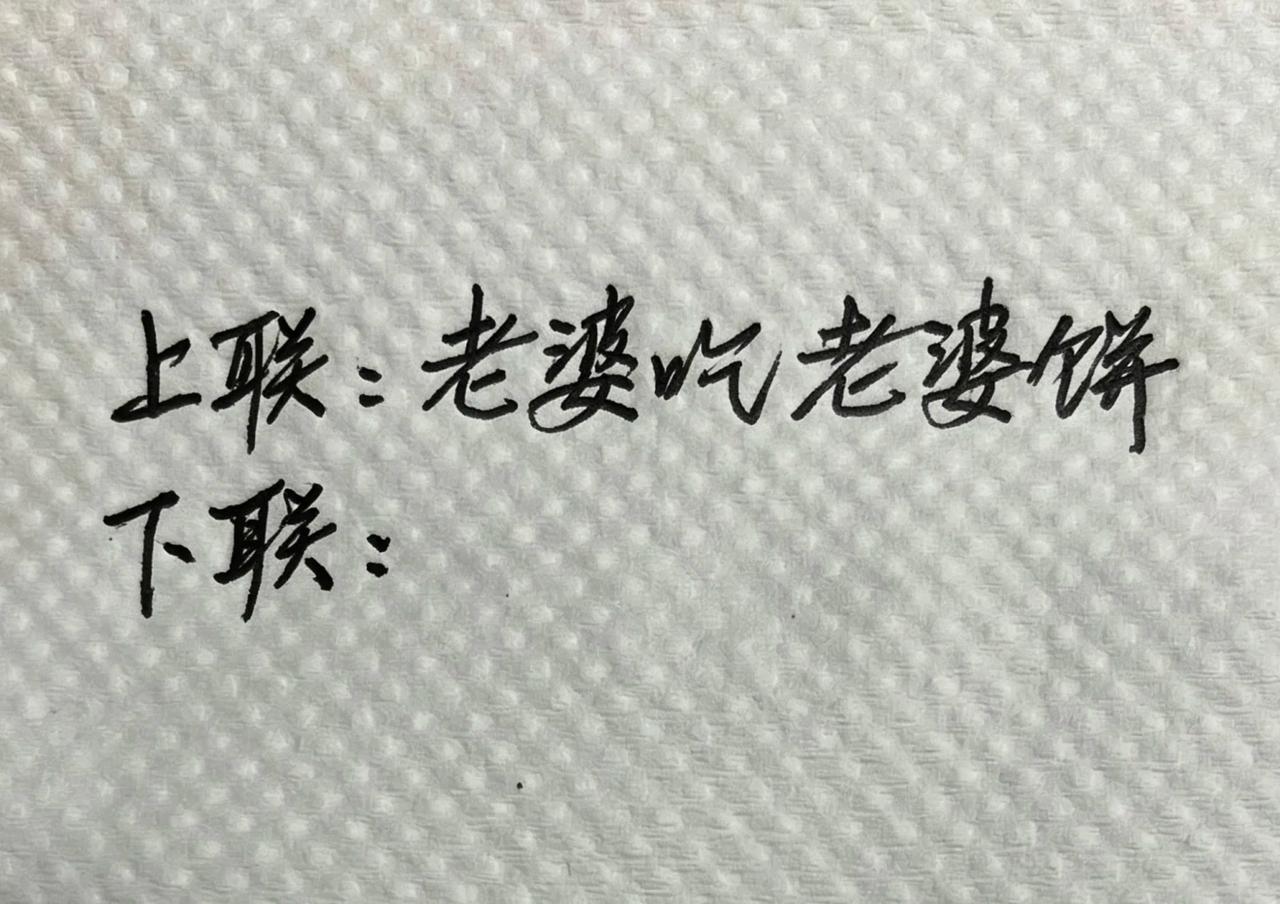 上联：老婆吃老婆饼
下联：